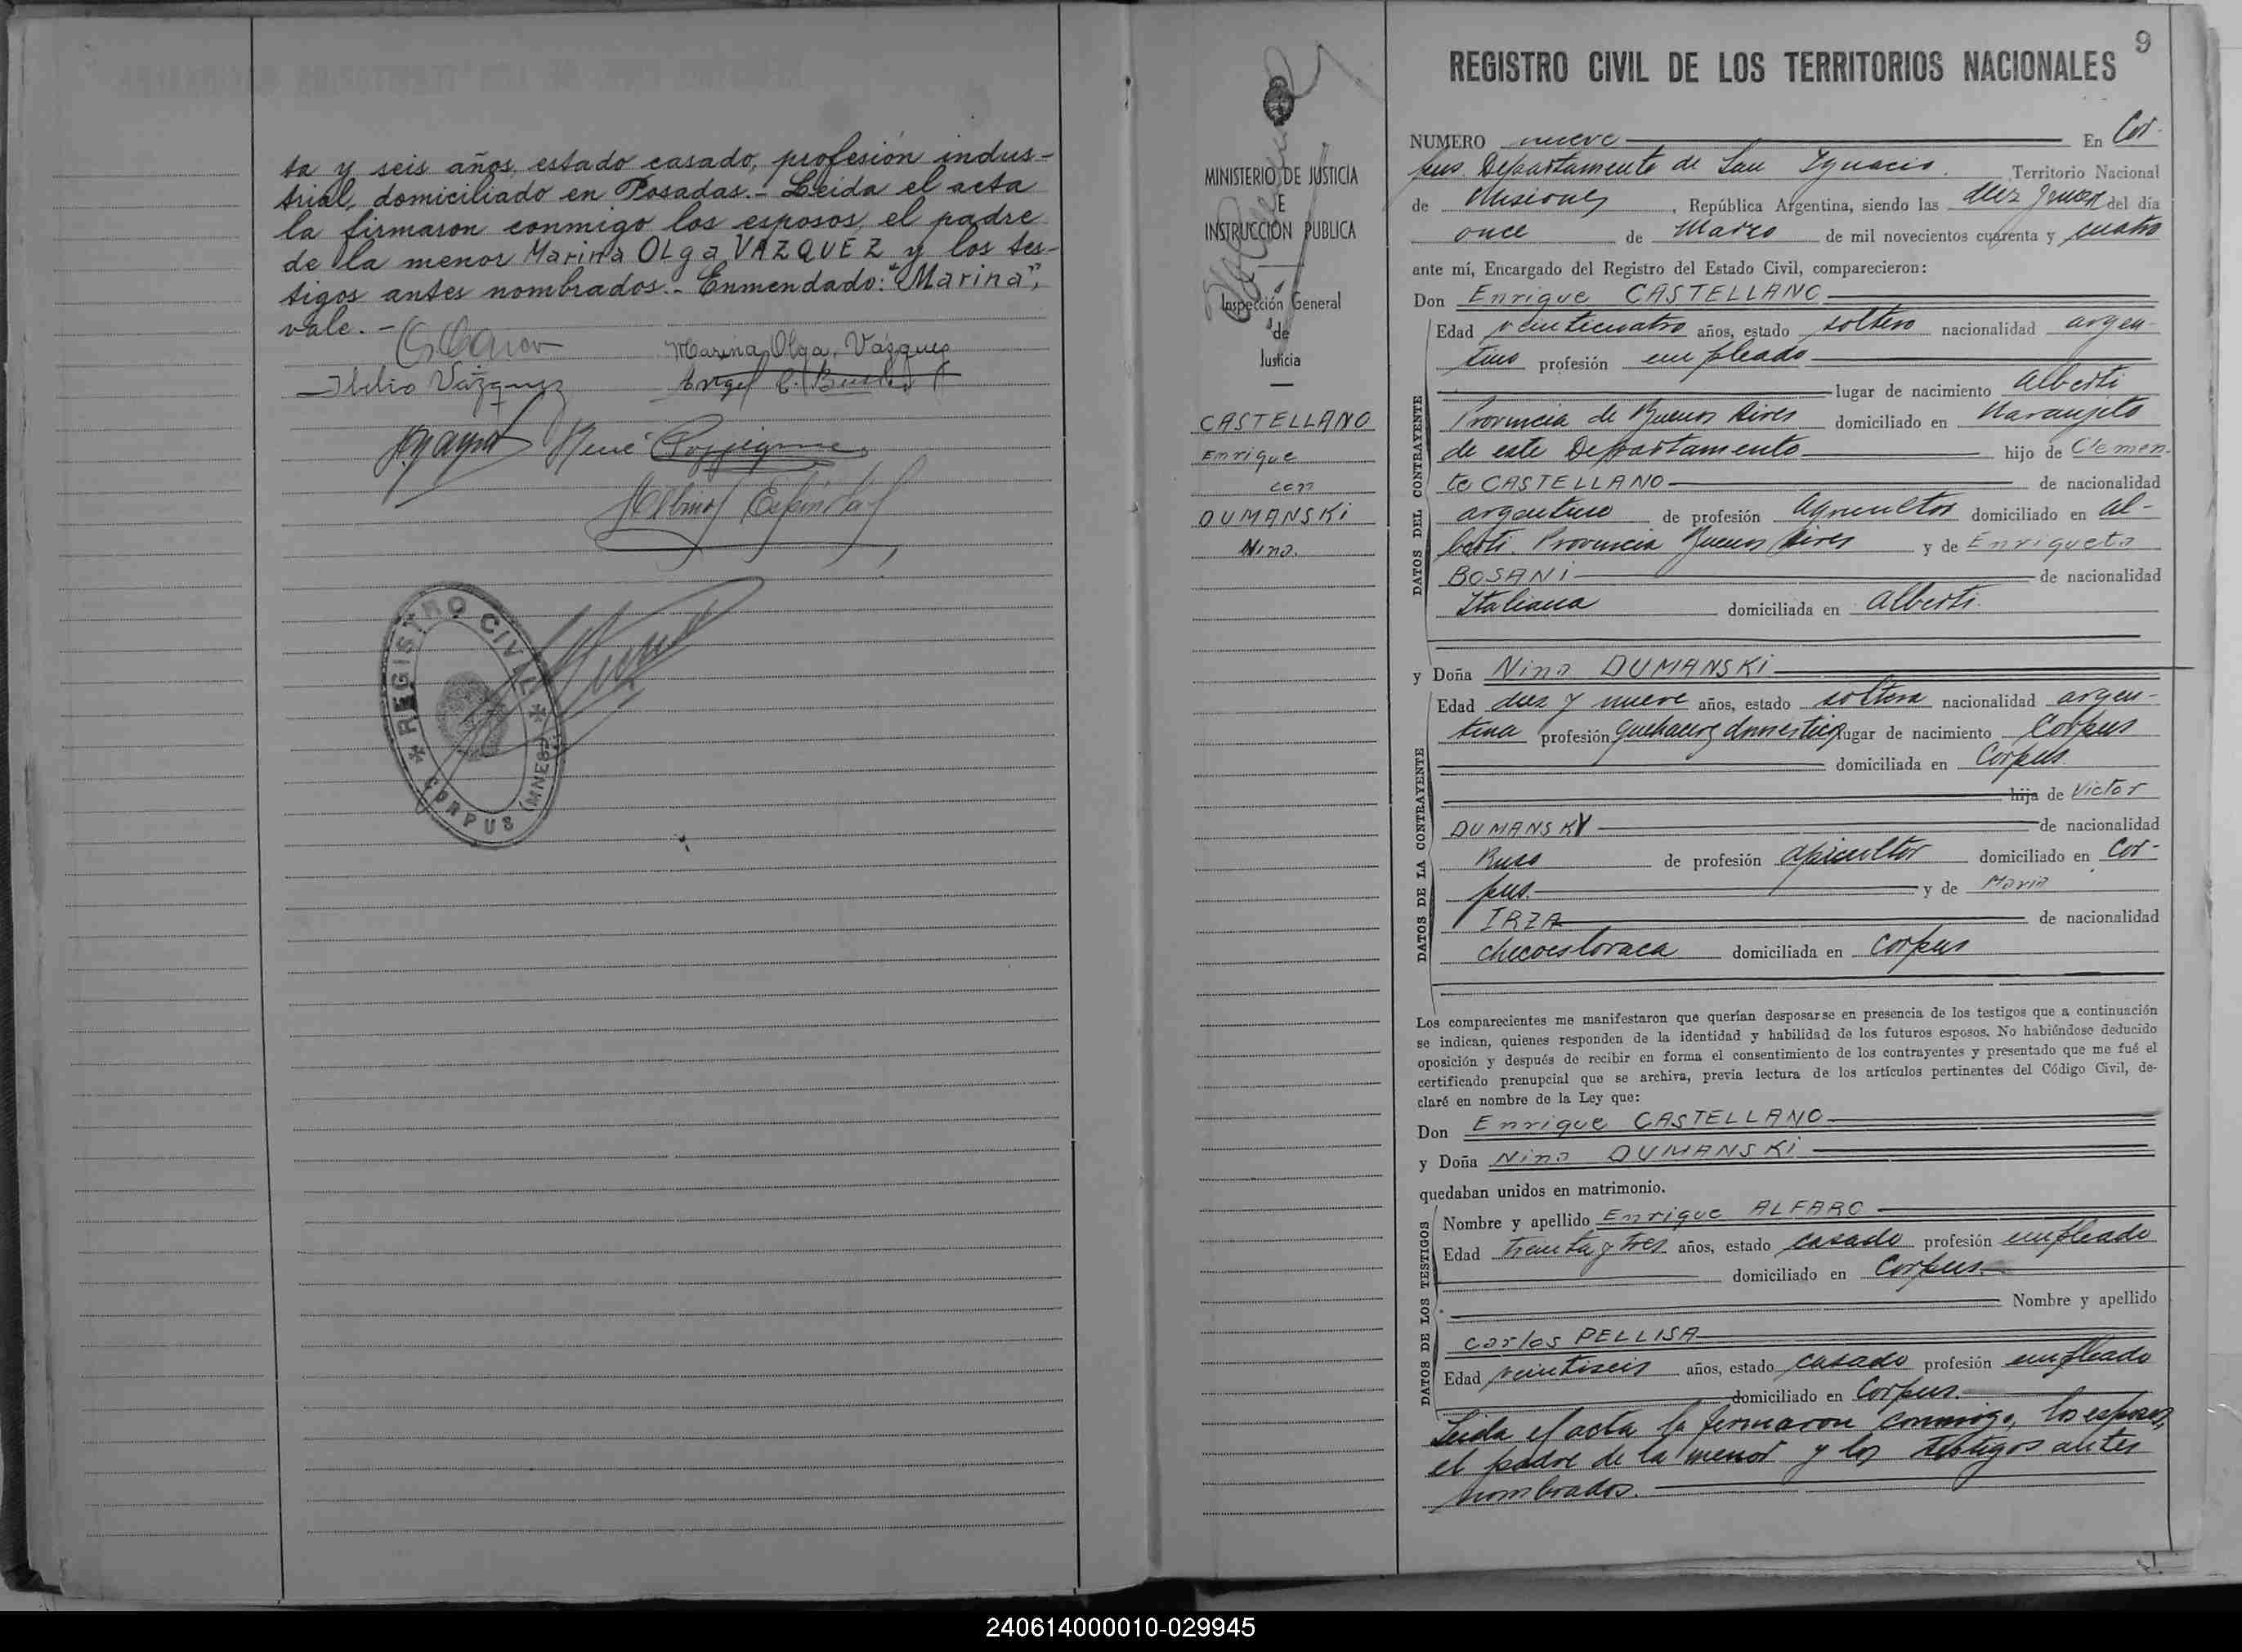 ta y seis años, estado casado, profesión indus-
trial, domiciliado en Posadas.- Leída el acta
la firmaron conmigo los esposos, el padre
de la menor Marina OLga VAZQUEZ y los tes-
tigos antes nombrados.- Enmendado: "Marina",
vale.-
Marina Olga Vázquez
Ilelio Vázquez
René
REGISTRO CIVIL
CORPUS (MNES)
9
REGISTRO CIVIL DE LOS TERRITORIOS NACIONALES
MINISTERIO DE JUSTICIA
E
INSTRUCCIÓN PUBLICA
Inspección General
de
Justicia
CASTELLANO
Enrique
con
DUMANSKi
Nina.
NUMERO nueve En Cor-
pus Departamento de San Ignacio. Territorio Nacional
de Misiones, República Argentina, siendo las diez y del día
once de Marzo de mil novecientos cuarenta y cuatro
ante mí, Encargado del Registro del Estado Civil, comparecieron:
DATOS DEL CONTRAYENTE
Don Enrique CASTELLANO
Edad veinticuatro años, estado soltero nacionalidad argen-
tino profesión empleado
lugar de nacimiento Alberti
Provincia de Buenos Aires domiciliado en Naranjito
de este Departamento hijo de Clemen-
te CASTELLANO de nacionalidad
argentino de profesión Agricultor domiciliado en Al-
berti. Provincia Buenos Aires y de Enriqueta
BOSANI de nacionalidad
Italiana domiciliada en Alberti.
DATOS DE LA CONTRAYENTE
y Doña Nina DUMANSKi
Edad diez y nueve años, estado soltera nacionalidad argen-
tina profesión quehaceres domésticos lugar de nacimiento Corpus
domiciliada en Corpus.
hija de Victor
DUMANSKY de nacionalidad
Ruso de profesión apicultor domiciliado en Cor-
pus. y de Maria
IRZA de nacionalidad
checoeslovaca domiciliada en Corpus
Los comparecientes me manifestaron que querían desposarse en presencia de los testigos que a continuación
se indican, quienes responden de la identidad y habilidad de los futuros esposos. No habiéndose deducido
oposición y después de recibir en forma el consentimiento de los contrayentes y presentado que me fué el
certificado prenupcial que se archiva, previa lectura de los artículos pertinentes del Código Civil, de-
claré en nombre de la Ley que:
Don Enrique CASTELLANO
y Doña Nina DUMANSKi
quedaban unidos en matrimonio.
DATOS DE LOS TESTIGOS
Nombre y apellido Enrique ALFARO
Edad treinta y tres años, estado casado profesión empleado
domiciliado en Corpus.
Nombre y apellido
Carlos PELLISA
Edad veintiseis años, estado casado profesión empleado
domiciliado en Corpus.
Leida el acta la firmaron conmigo, los esposos,
el padre de la menor y los testigos antes
nombrados.
240614000010-029945